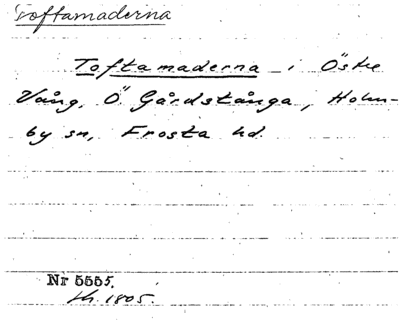 Toftamaderna
Toftamaderna i Östre
Vång, Ö. Gårdstånga, Holm-
by sn, Frosta hd.
Nr 5555.
Lh. 1805.